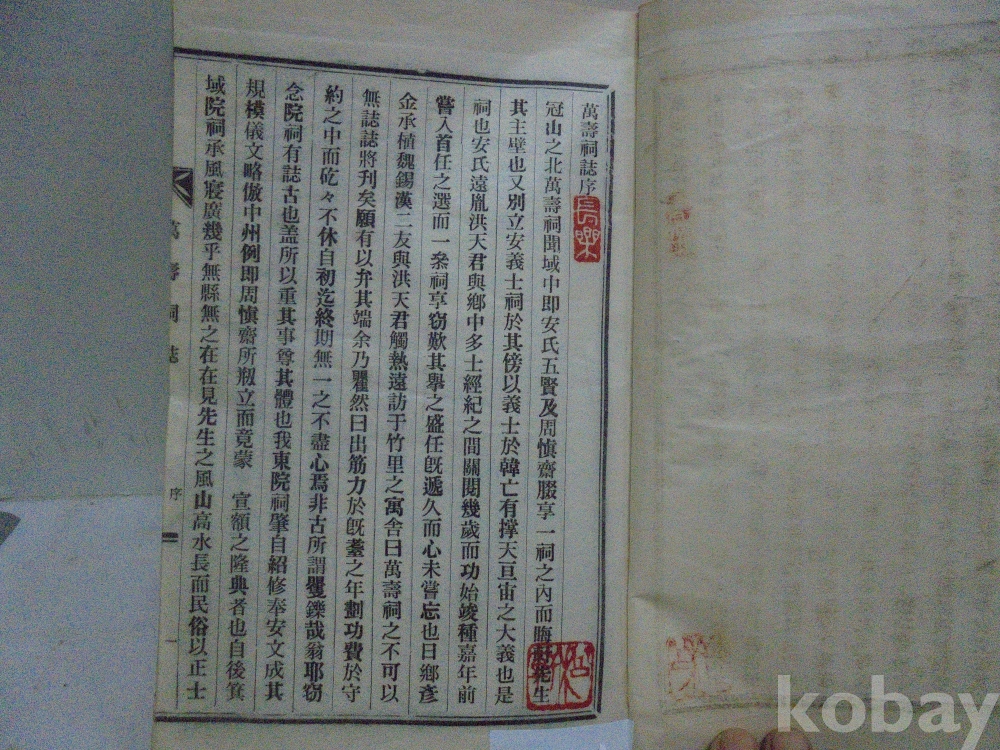 萬壽祠誌序
冠山之北萬壽祠聞域中即安氏五賢及周愼齋腏享一祠之內而晦軒先生
其主壁也又別立安義士祠於其傍以義士於韓亡有撑天亘宙之大義也是
祠也安氏遠胤洪天君與鄕中多士經紀之間關閱幾歲而功始竣種嘉年前
嘗入首任之選而一叅祠享窃歎其擧之盛任旣遞久而心未嘗忘也日鄕彦
金承楨魏錫漢二友與洪天君觸熱遠訪于竹里之寓舍曰萬壽祠之不可以
無誌誌將刋矣願有以弁其端余乃瞿然曰出筋力於旣耋之年劃功費於守
約之中而矻々不休自初迄終期無一之不盡心焉非古所謂矍鑠哉翁耶窃
念院祠有誌古也盖所以重其事尊其體也我東院祠肇自紹修奉安文成其
規模儀文略倣中州例即周愼齋所刱立而竟蒙　宣額之隆典者也自後箕
域院祠承風寢廣幾乎無縣無之在在見先生之風山高水長而民俗以正士
萬壽祠誌
序
一
kobay